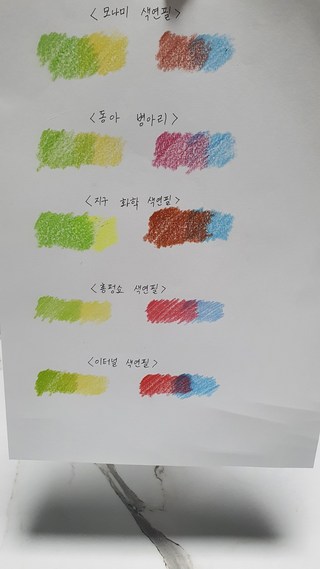 <모나미 색연필>
<동아 병아리>
<지구 화학 색연필>
<홍청소 색연필>
<이터널 색연필>